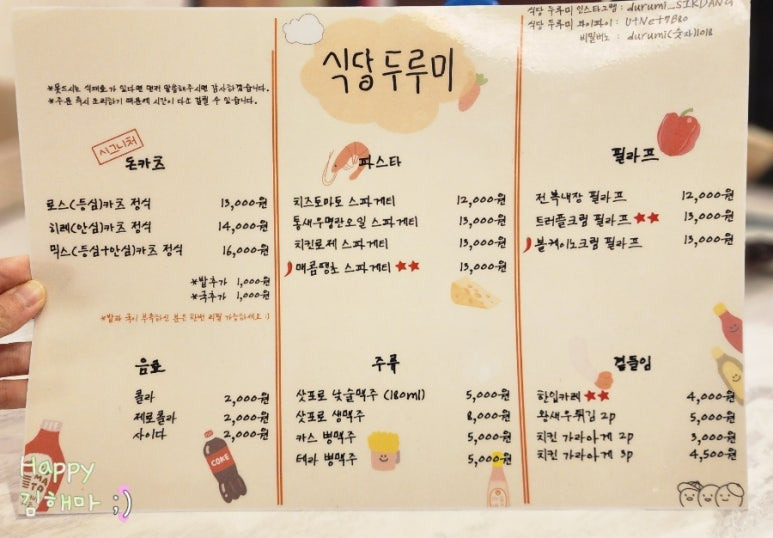 식당 두루미 인스타그램 : durumi_SIKDANG
식당 두루미 와이파이 : U+Net7BB0
비밀번호 : durumi(숫자)1018
식당 두루미
*못드시는 식재료가 있다면 먼저 말씀해주시면 감사하겠습니다.
*주문 즉시 조리하기 때문에 시간이 다소 걸릴 수 있습니다.
시그니처
돈카츠
로스(등심)카츠 정식 13,000원
히레(안심)카츠 정식 14,000원
믹스(등심+안심)카츠 정식 16,000원
*밥추가 1,000원
*국추가 1,000원
*밥과 국이 부족하신 분은 한번 리필 가능하세요 :)
파스타
치즈토마토 스파게티 12,000원
통새우명란오일 스파게티 13,000원
치킨로제 스파게티 13,000원
매콤땡초 스파게티 ★★ 13,000원
필라프
전복내장 필라프 12,000원
트러플크림 필라프 ★★ 13,000원
볼케이노크림 필라프 13,000원
음료
콜라 2,000원
제로콜라 2,000원
사이다 2,000원
COKE
주류
삿포로 낮술맥주 (180ml) 5,000원
삿포로 생맥주 8,000원
카스 병맥주 5,000원
테라 병맥주 5,000원
곁들임
한입카레 ★★ 4,000원
왕새우튀김 2p 5,000원
치킨 가라아게 2p 3,000원
치킨 가라아게 3p 4,500원
Happy
김해마 ;)